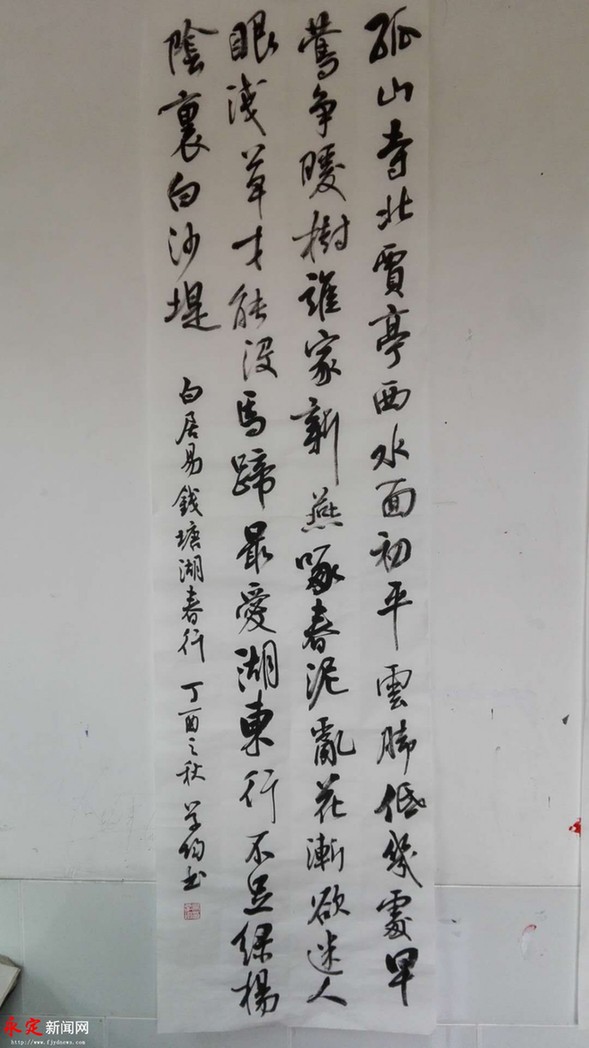 孤山寺北賈亭西水面初平雲腳低幾處早
鶯爭暖樹誰家新燕啄春泥亂花漸欲迷人
眼淺草才能没馬蹄最愛湖東行不足綠楊
陰裏白沙堤
白居易錢塘湖春行 丁酉之秋 書
永定新闻网
http://www.fjydnews.com